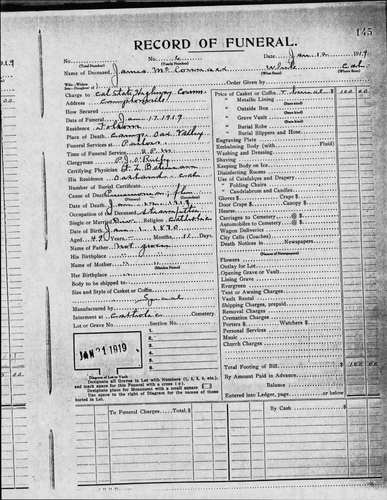 145
RECORD OF FUNERAL.
No. (Total Number)
No. 4 (Yearly Number)
Date Jan 12 1919
Name of Deceased James Mc Cormack
White (What Race)
Cal (Where Born)
Charge to Cal State Highway Comm.
Order Given by
Address Camptonville
How Secured
Date of Funeral Jan 17 1919
Residence Folsom
Place of Death Camp Oak Valley
Funeral Services at Parlors
Time of Service 2 P.M.
Clergyman
Certifying Physician
His Residence
Number of Burial Certificate
Cause of Death Pneumonia flu
Date of Death Jan 1919
Occupation of the Deceased
Single or Married Religion Catholic
Date of Birth Jan 1 1870
Aged 49 Years Months 11 Days
Name of Father Not given
His Birthplace
Name of Mother (Maiden Name)
Her Birthplace
Body to be shipped to
Size and Style of Casket or Coffin
Manufactured by Special
Interment at Catholic Cemetery
Lot or Grave No. Section No.
JAN 21 1919
1
2
3
4
5
6
Diagram of Lot or Vault
Designate all Graves in Lot with Numbers (1, 2, 3, 4, etc.), and mark space for this Funeral with a cross (+).
Designate place for Monument with a small square
Use space to right of Diagram for the names of those buried in Lot.
Price of Casket or Coffin $ 100 00
" Metallic Lining (State kind)
" Outside Box (State kind)
" Grave Vault (State kind)
" Burial Robe (State kind)
" Burial Slippers and Hose
Engraving Plate
Embalming Body (with Fluid)
Washing and Dressing
Shaving
Keeping Body on Ice
Disinfecting Rooms
Use of Catafalque and Drapery
" Folding Chairs
" Candelabrum and Candles
Gloves $ Crape $
Door Crape $ Canopy $
Hearse
Carriages to Cemetery @ $
Automobiles to Cemetery @ $
Wagon Deliveries
City Calls (Coaches)
Death Notices in Newspapers
Flowers
Outlay for Lot
Opening Grave or Vault
Lining Grave
Evergreen
Tent or Awning Charges
Vault Rental
Shipping Charges, prepaid
Removal Charges
Cremation Charges
Porters $ Watchers $
Personal Services
Music
Church Charges
Total Footing of Bill $ 100 00
By Amount Paid in Advance
Balance
Entered into Ledger, page or below
To Funeral Charges, Total $
By Cash $